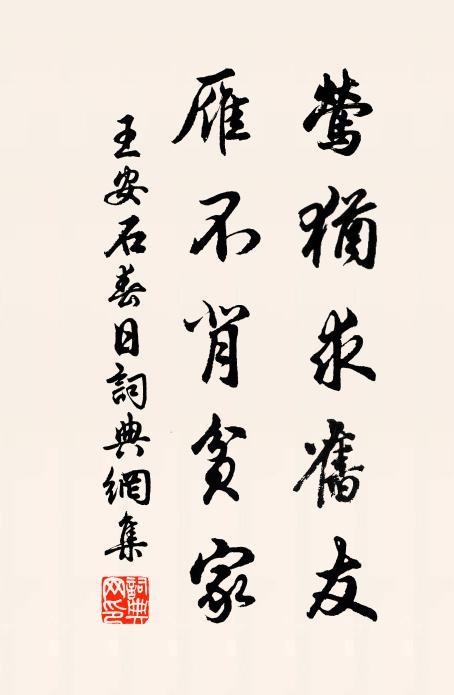 鶯猶求舊友
雁不背貧家
王安石春日詞典網集
詞典网印